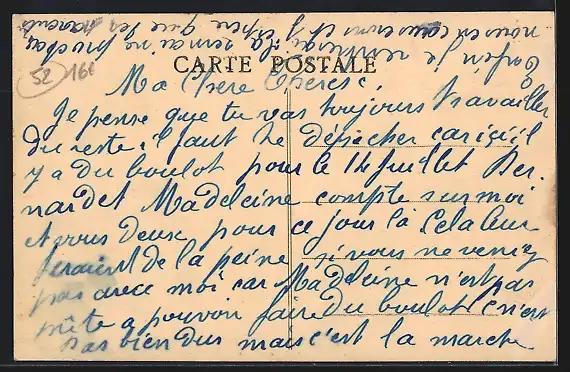 CARTE POSTALE
52 161
Ma Chere Therese,
Je pense que tu vas toujours travailler
du reste il faut te depècher car ici il
y a du boulot pour le 14 juillet Ber-
nardet Madeleine compte sur moi
et vous deux pour ce jour là Cela leur
feraient de la peine si vous ne veniez
pas avec moi car Madeleine n'est pas
prête a pouvoir faire du boulot c n'est
pas bien dur mais c'est la marche
Enfin je la semaine prochaine
nous en causerons et j'espère que les